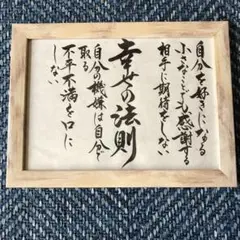 自分を好きになる
小さなことでも感謝する
相手に期待をしない
幸せの法則
自分の機嫌は自分で
取る
不平不満を口に
しない